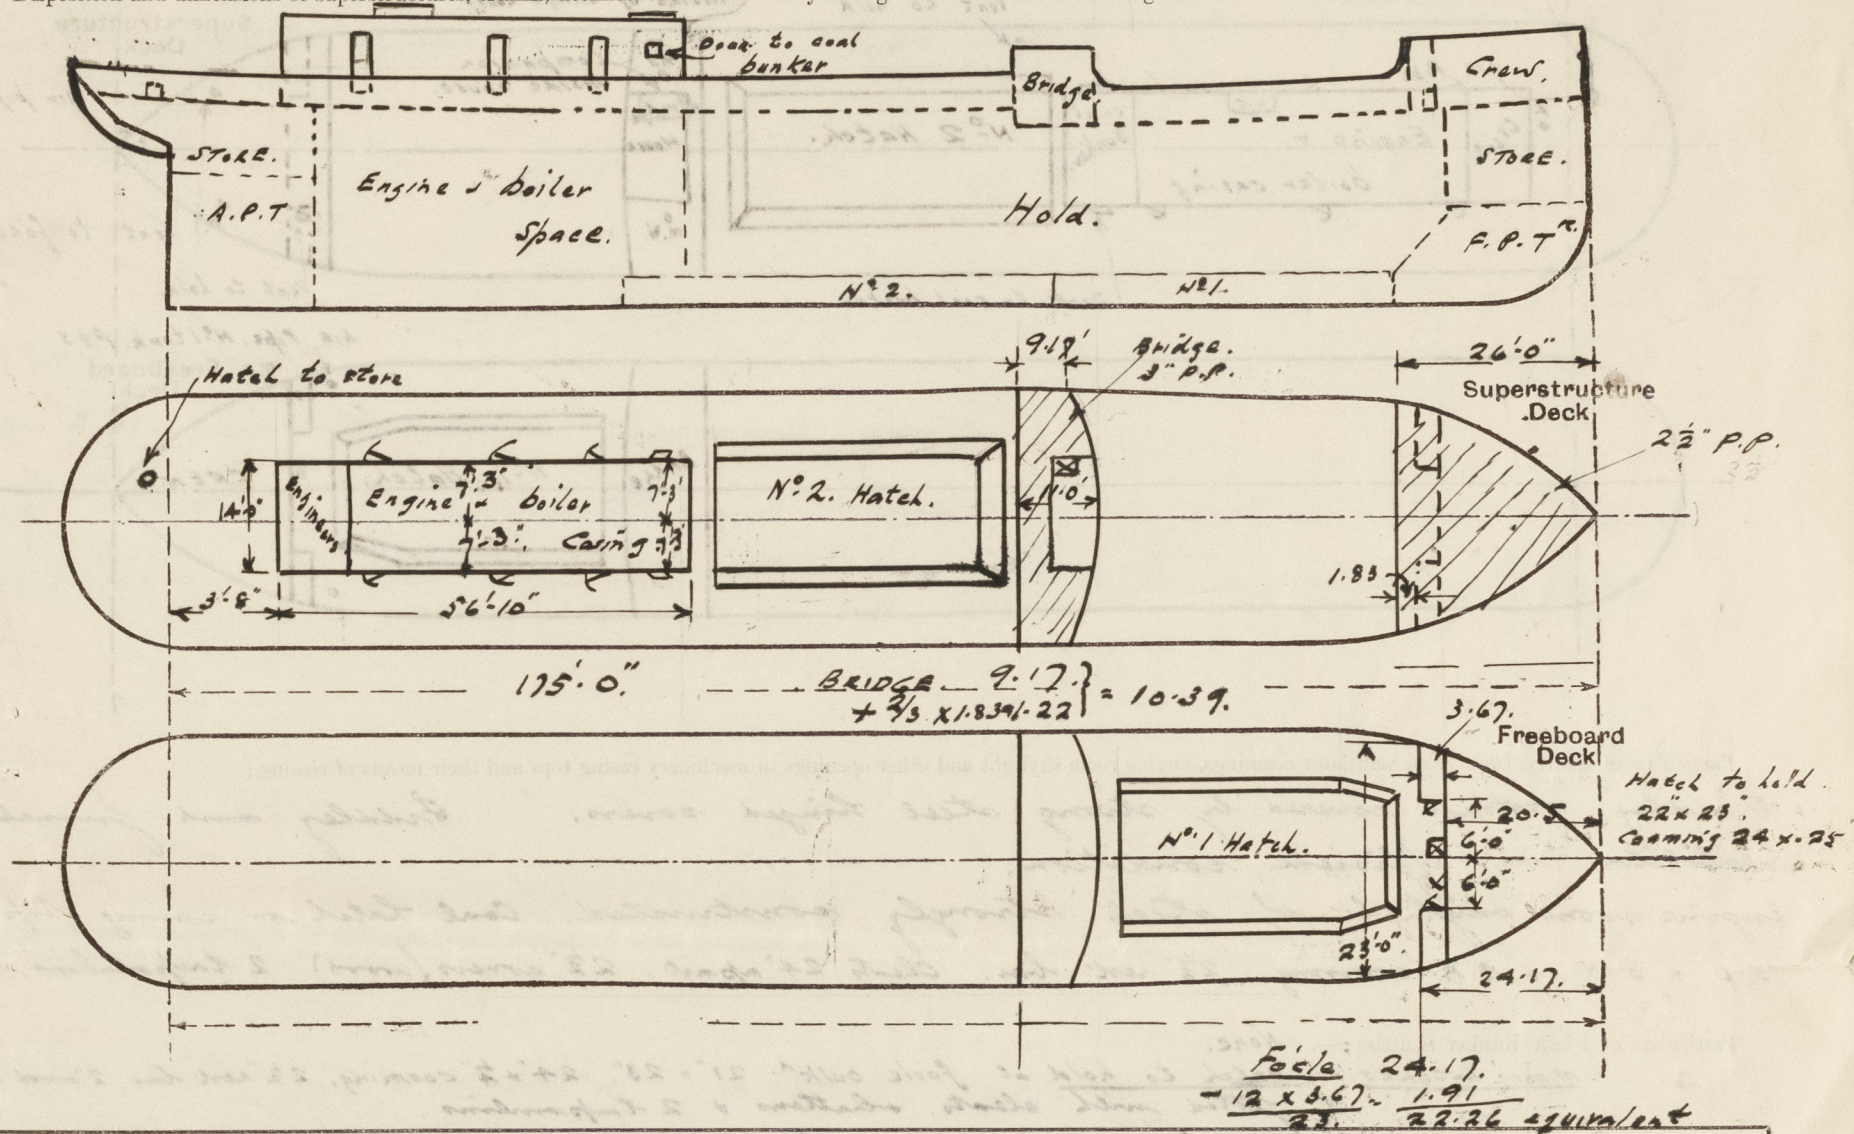 Door to coal
bunker
Bridge.
Crew.
STORE.
Engine & boiler
Space.
A.P.T
Hold.
STORE.
F.P.TK.
No 2.
No 1.
Hatch to store
9.17'
Bridge.
3" P.P.
26'-0"
Superstructure
Deck
2½" P.P.
14'-0"
Engineers
Engine & boiler
Casing
7'-3"
7'-3"
7'-3"
7'-3"
No. 2. Hatch.
11'-0"
1.83
3'-8"
56'-10"
175'-0".
BRIDGE 9.17.
+ 2/3 x 1.83 = 1.22 } = 10.39.
3.67.
Freeboard
Deck
Hatch to hold
22" x 23".
Coaming 24 x .25
No. 1 Hatch.
20.5
6'-0"
6'-0"
23'-0".
24.17.
Focle 24.17.
- 12 x 3.67 = 1.91
23. 22.26 equivalent